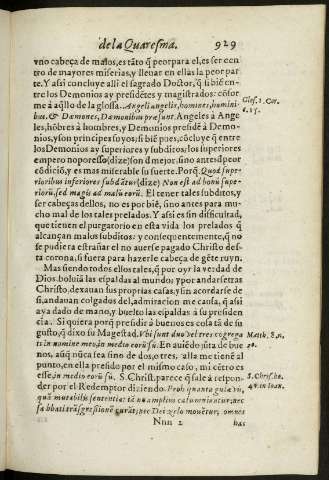 de la Quaresma. 929
vno cabeça de malos, es tãto q̃ peor para el, es ser cen
tro de mayores miserias, y lleuar en ellas la peor par
te. Y assi concluye alli el sagrado Doctor, q̃ tãbiẽ en-
tre los Demonios ay presidẽtes y magistrados: cõfor
me à aq̃llo de la glossa. Angeli angelis, homines, homini
bus, & Dæmones, Dæmonibus præsunt. Angeles à Ange
les, hõbres à hombres, y Demonios presidẽ à Demo-
nios, y son principes suyos; si biẽ pues, cõcluye q̃ entre
los Demonios ay superiores y subditos: los superiores
empero no por esso (dize) son d mejor, sino antes d peor
cõdiciõ, y es mas miserable su suerte. Porq̃. Quod supe-
rioribus inferiores subdãtur (dize) Non est ad bonũ supe-
riorũ, sed magis ad malũ eorũ. El tener tales subditos, y
ser cabeças dellos, no es por biẽ, sino antes para mu-
cho mal de los tales prelados. Y assi es sin dificultad,
que tienen el purgatorio en esta vida los prelados q̃
alcançan malos subditos: y consequentemente, q̃ no
se pudiera estrañar el no auerse pagado Christo des-
ta corona, si fuera para hazerle cabeça de gẽte ruyn.
Mas siendo todos ellos tales, q̃ por oyr la verdad de
Dios, boluiã las espaldas al mundo; y por andarse tras
Christo, dexauan sus propias casas, y sin acordarse de
si, andauan colgados del, admiracion me causa, q̃ assi
aya dado de mano, y buelto las espaldas à su presiden
cia. Si quiera porq̃ presidir à buenos es cosa tã de su
gusto, q̃ dixo su Magestad. Vbi sunt duo vel tres cõgrega
ti in nomine meo, in medio eorũ sũ. En auiẽdo jũta de bue
nos, aũq̃ nũca sea sino de dos, o tres, alla me tienẽ al
punto, en ella presido por el mismo caso, mi cẽtro es
esse, in medio eorũ sũ. S. Christ. parece q̃ sale à respon-
der por el Redemptor diziendo. Proh quanta gulæ vis,
quã mutabilis sententia: tã nu amplius calumniantur; nec
sabbati trãsgressionẽ curãt, nec Dei zelo mouẽtur, omnes
Nnn 2 has
Glos. 1. Cor.
c. 15.
Matth. 8. n.
20.
S. Chris. ho.